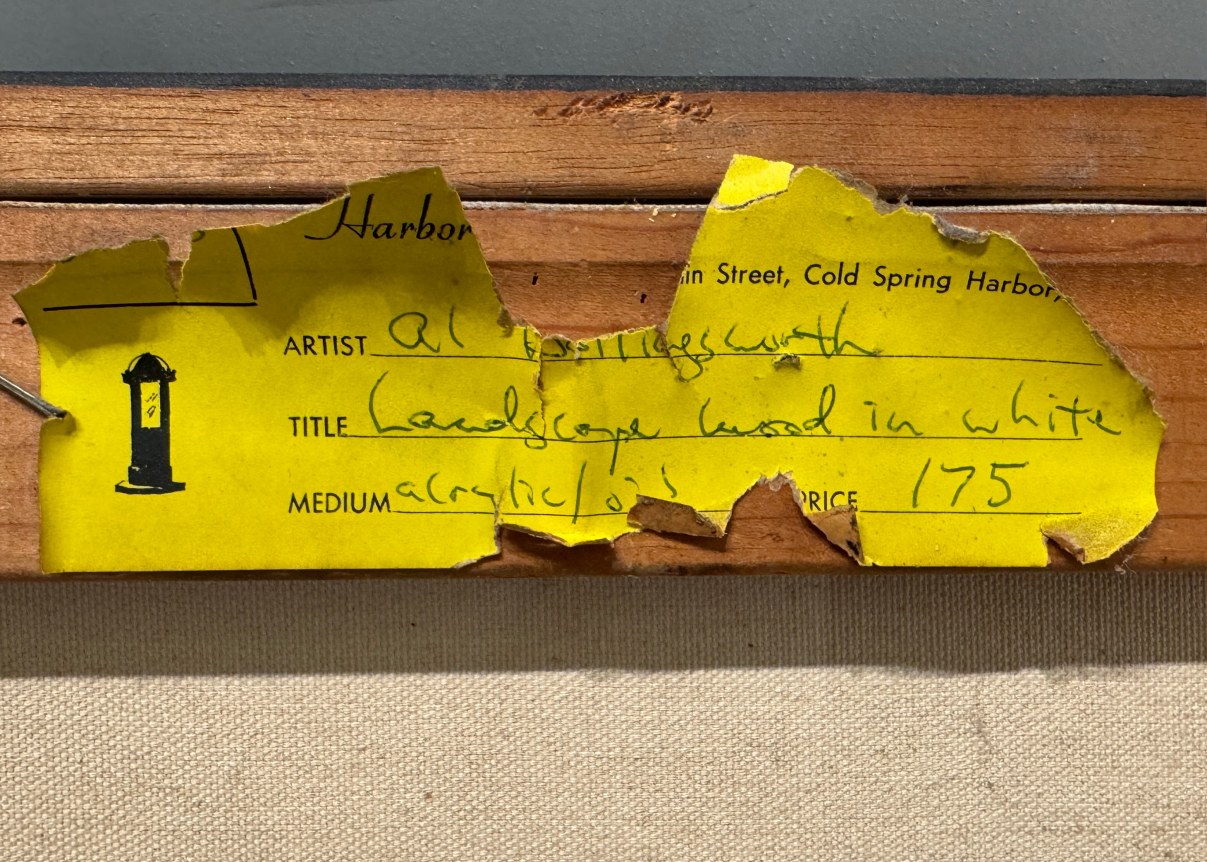 Harbor
in Street, Cold Spring Harbor,
ARTIST al Hollingsworth
TITLE Landscape mood in white
MEDIUM acrylic/oil PRICE 175